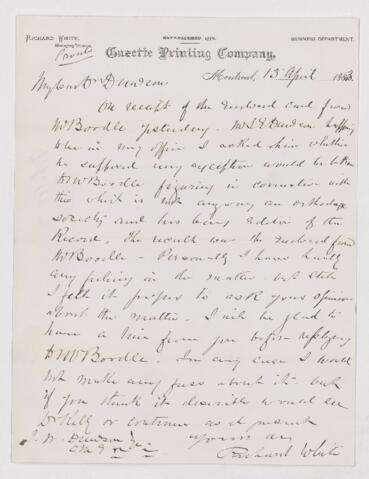 RICHARD WHITE,
Managing Director.
Private
ESTABLISHED 1778.
BUSINESS DEPARTMENT.
Gazette Printing Company,
Montreal, 13 April 1883
My dear Dr Dawson
On receipt of the enclosed card from
Mr Boodle yesterday. Mr Dawson happening
to be in my office I asked him whether
he supposed any exception would be taken
to Mr Boodle figuring in connection with
this which is not anyway an orthodox
society and his being editor of the
Record. The result was the enclosed from
Mr Boodle - Personally I have hardly
any feeling in the matter but still
I felt it proper to ask your opinion
about the matter. I will be glad to
have a line from you before replying
to Mr Boodle. In any case I would
not make any fuss about it but
if you think it desirable would see
Dr Kelly or continue as at present
yours &c
J. W. Dawson
Richard White